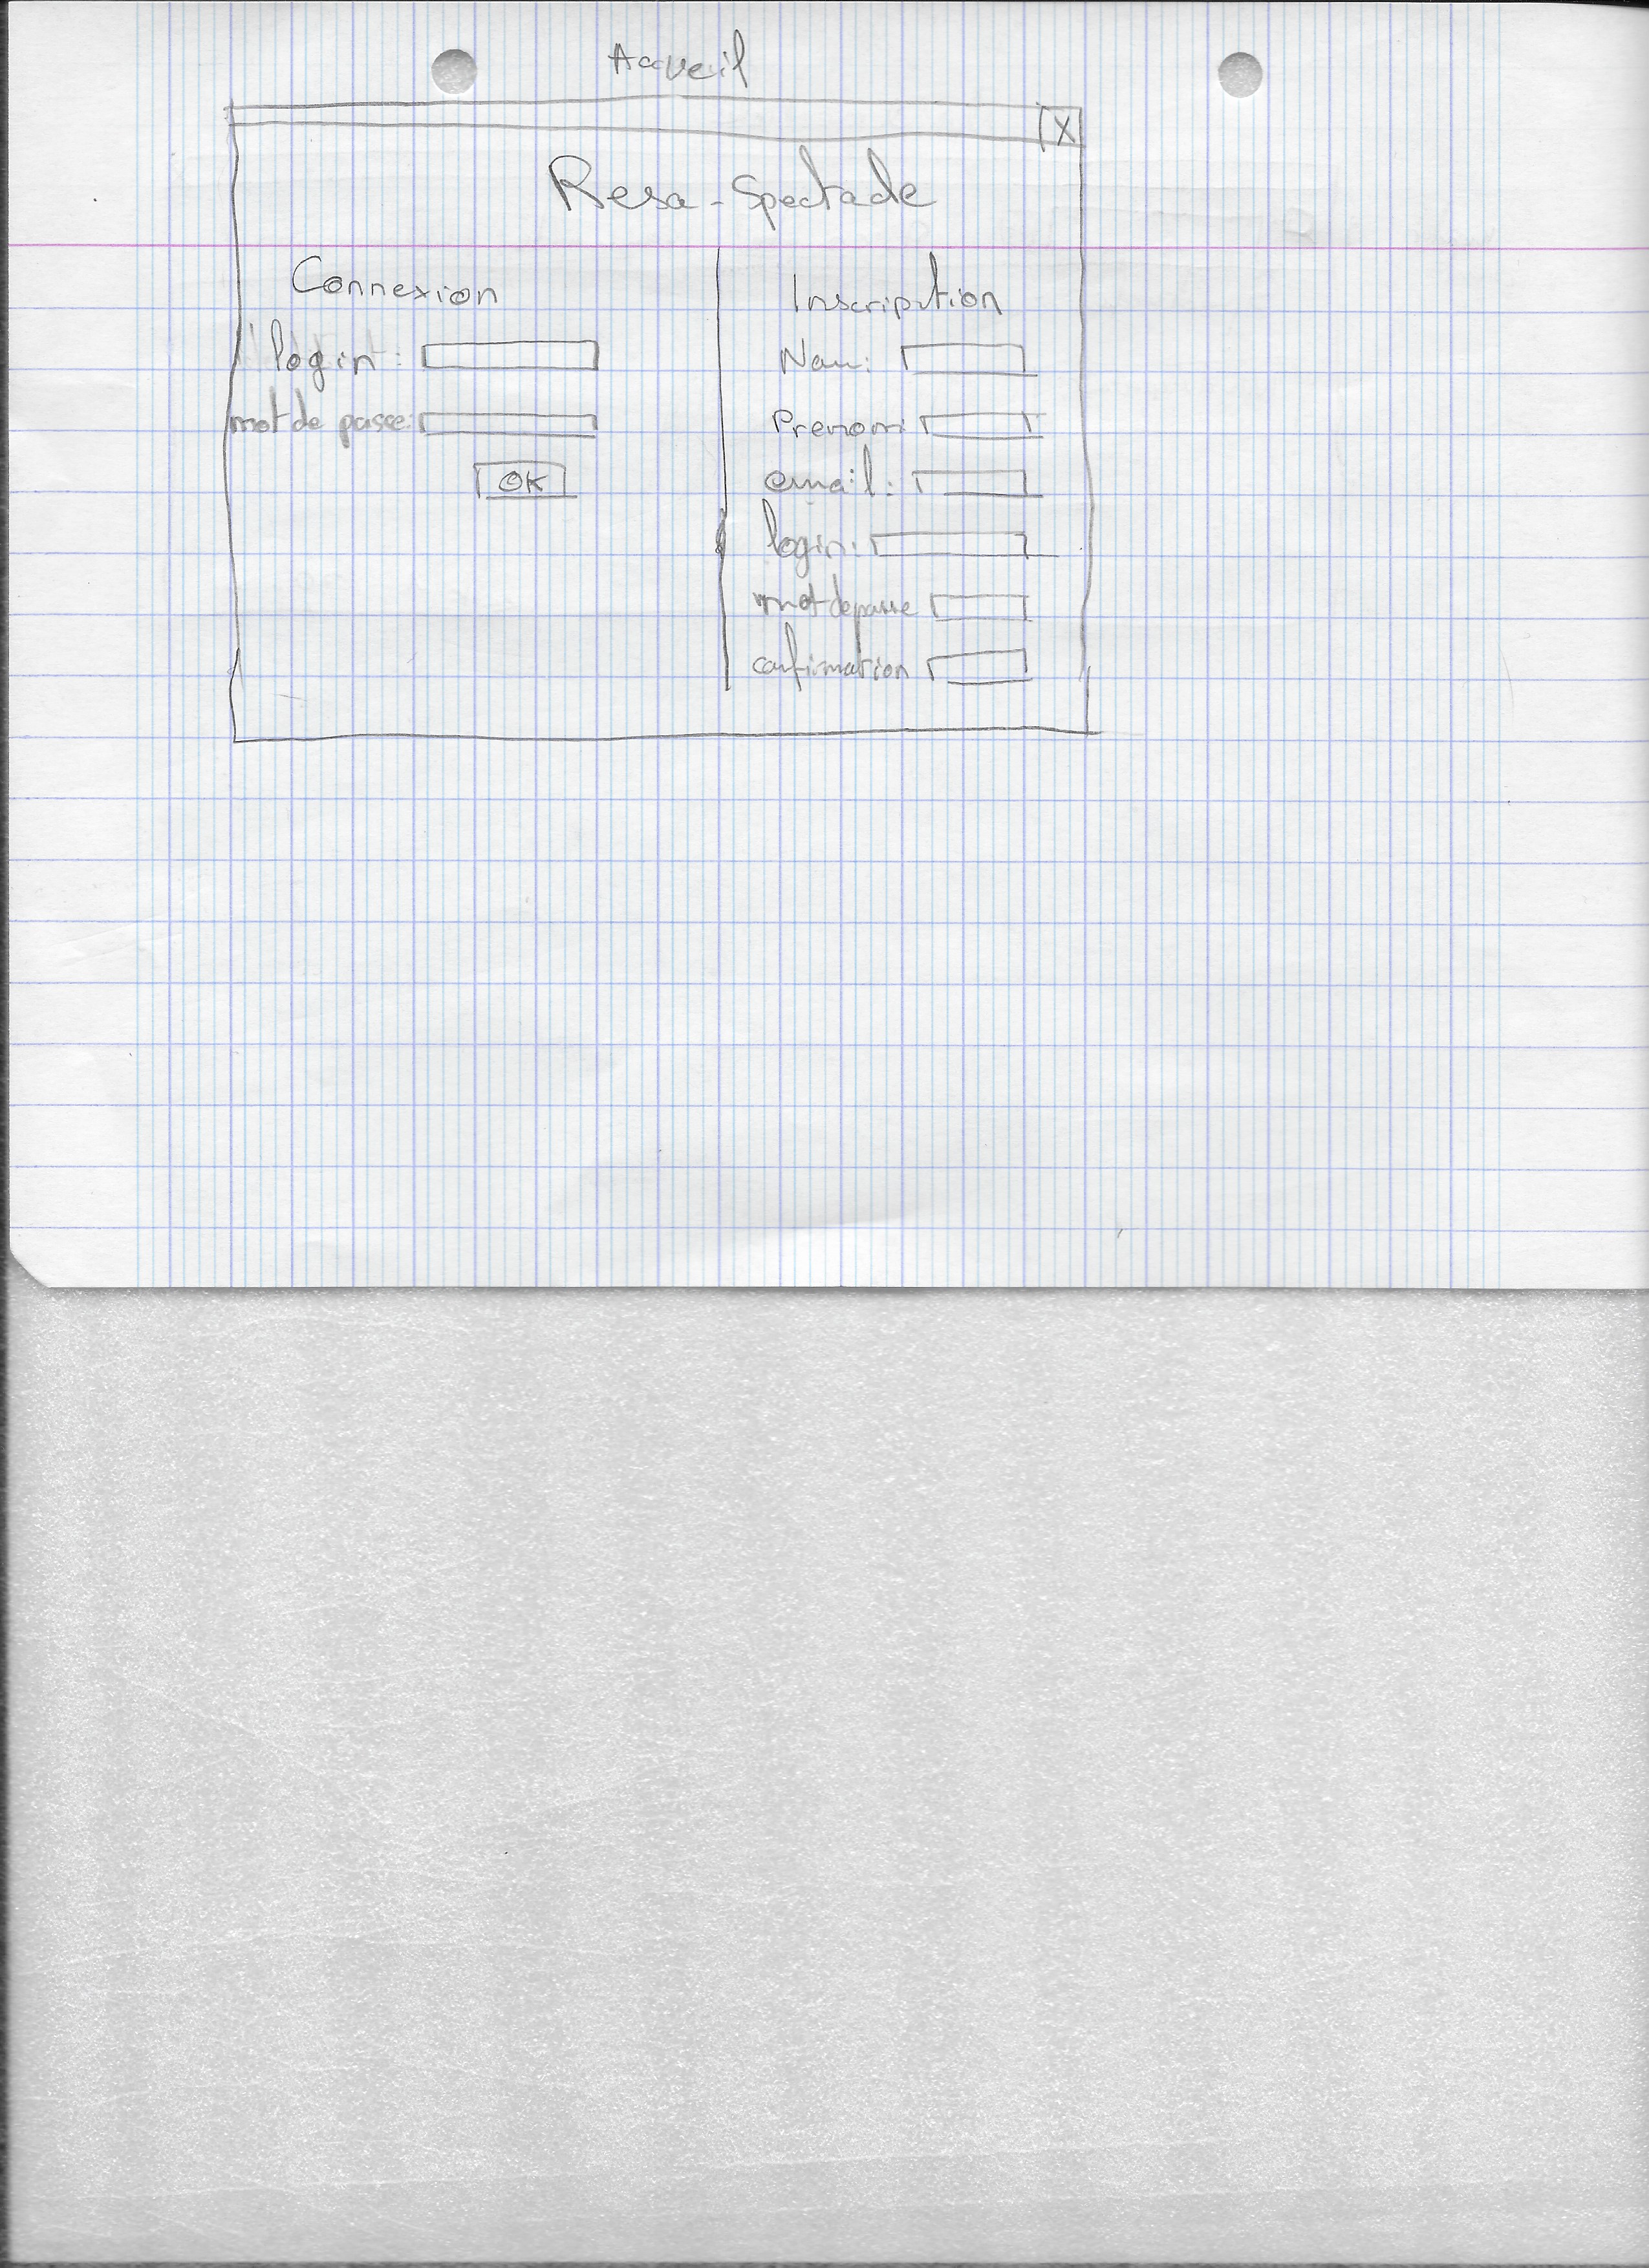 Accueil
X
Resa-Spectacle
Connexion
login :
mot de passe:
OK
Inscripution
Nom:
Prenom:
email:
login:
mot de passe
confirmation